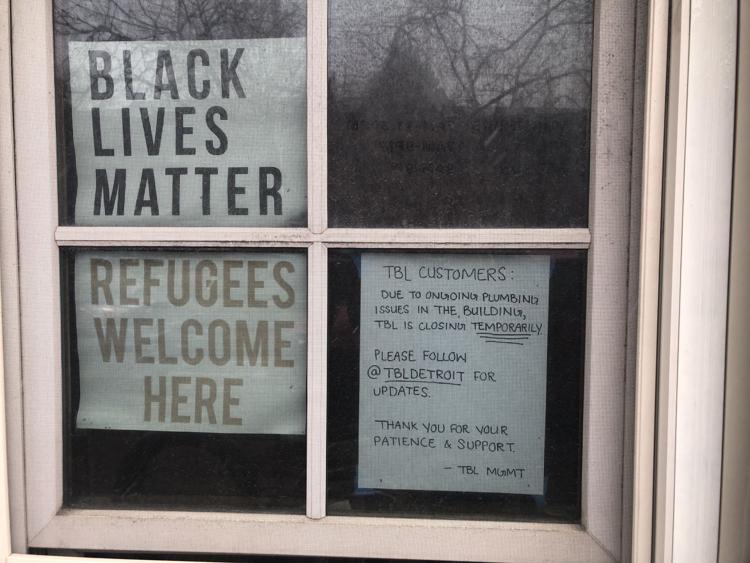 BLACK
LIVES
MATTER
REFUGEES
WELCOME
HERE
TBL CUSTOMERS:
DUE TO ONGOING PLUMBING
ISSUES IN THE BUILDING,
TBL IS CLOSING TEMPORARILY.
PLEASE FOLLOW
@TBLDETROIT FOR
UPDATES.
THANK YOU FOR YOUR
PATIENCE & SUPPORT.
- TBL MGMT